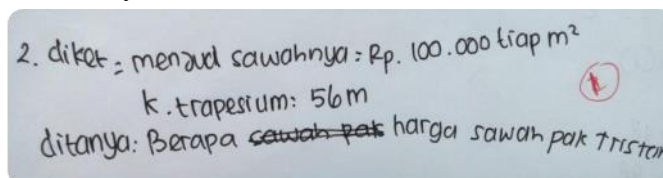 2. diket = menjual sawahnya : Rp. 100.000 tiap m²
k. trapesium : 56 m
ditanya : Berapa sawah pak harga sawah pak Tristan